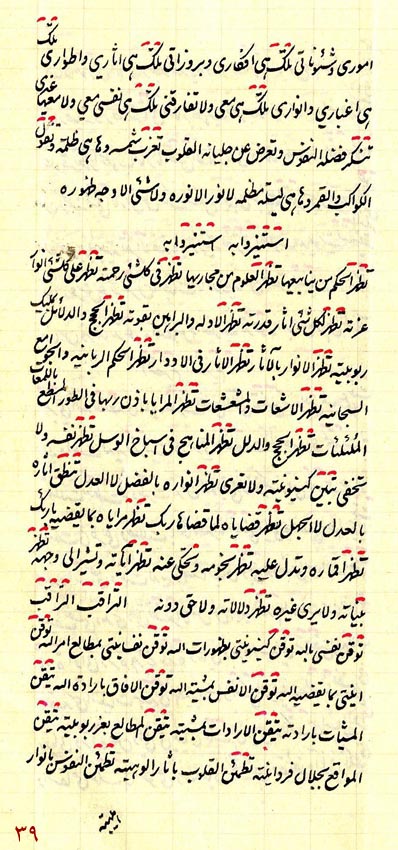 اموری و شئوناتی تلک هی افکاری و بروزاتی تلک هی اثاری و اطواری تلک
هی اغیاری و انواری تلک هی معی ولا تفارقنی تلک هی نفسی معی ولا معها غیری
تنکر فضله النفوس و تعرض عن جلیاته القلوب تغرب شمسه و ها هی ظلمة و تقول
الکواکب والقمر و ها هی لیلة مظلمه لا نور الا نوره ولا شئی الا وجه ظهوره
استنیروا به استنیروا به
تظهر الحکم من ینابیعها تظهر العلوم من مجاریها تظهر فی کلشئی رحمته تظهر علی کلشئی انوار
عزته تظهر لکل شئی اثار قدرته تظهر الادله والبراهین بقوته تظهر الحجج والدلائل
ربوبیته تظهر الانوار بالآثار تظهر الآثار فی الادوار تظهر الحکم الربانیه والجوامع
السبحانیه تظهر الاشعات والمشعشعات تظهر المرایا باذن ربها فی الطور المنطع باللمعات
المتلئلئات تظهر الحجج والدلل تظهر المناهج فی السبل تظهر نفسه ولا
تخفی تبین کینونیته ولا تعری تظهر انواره بالفضل لا العدل تنطق اثاره
بالعدل لا الجهل تظهر قضایاه لما قضاها ربک تظهر مرایاه بما یقضیه بارئک
تظهر اقماره و تدل علیه تظهر نجومه و تحکی عنه تظهر آیاته و تشر الی وجهه تظهر
بیناته ولا یری غیره تظهر دلالاته ولا حق دونه التراقب التراقب
توقن نفسی بالله توقن کینونیتی بظهورات الله توقن نفسانیتی بمطالع امر الله توقن
اینیتی بما یقضیه الله توقن الانفس بمشیة الله توقن الافاق بارادة الله تیقن
المشیات بارادته تیقن الارادات بمشیته تیقن المطالع بعز ربوبیته تیقن
المواقع بجلال فردانیته تطمئن القلوب باثار الوهیته تطمئن النفوس بانوار
٣٩